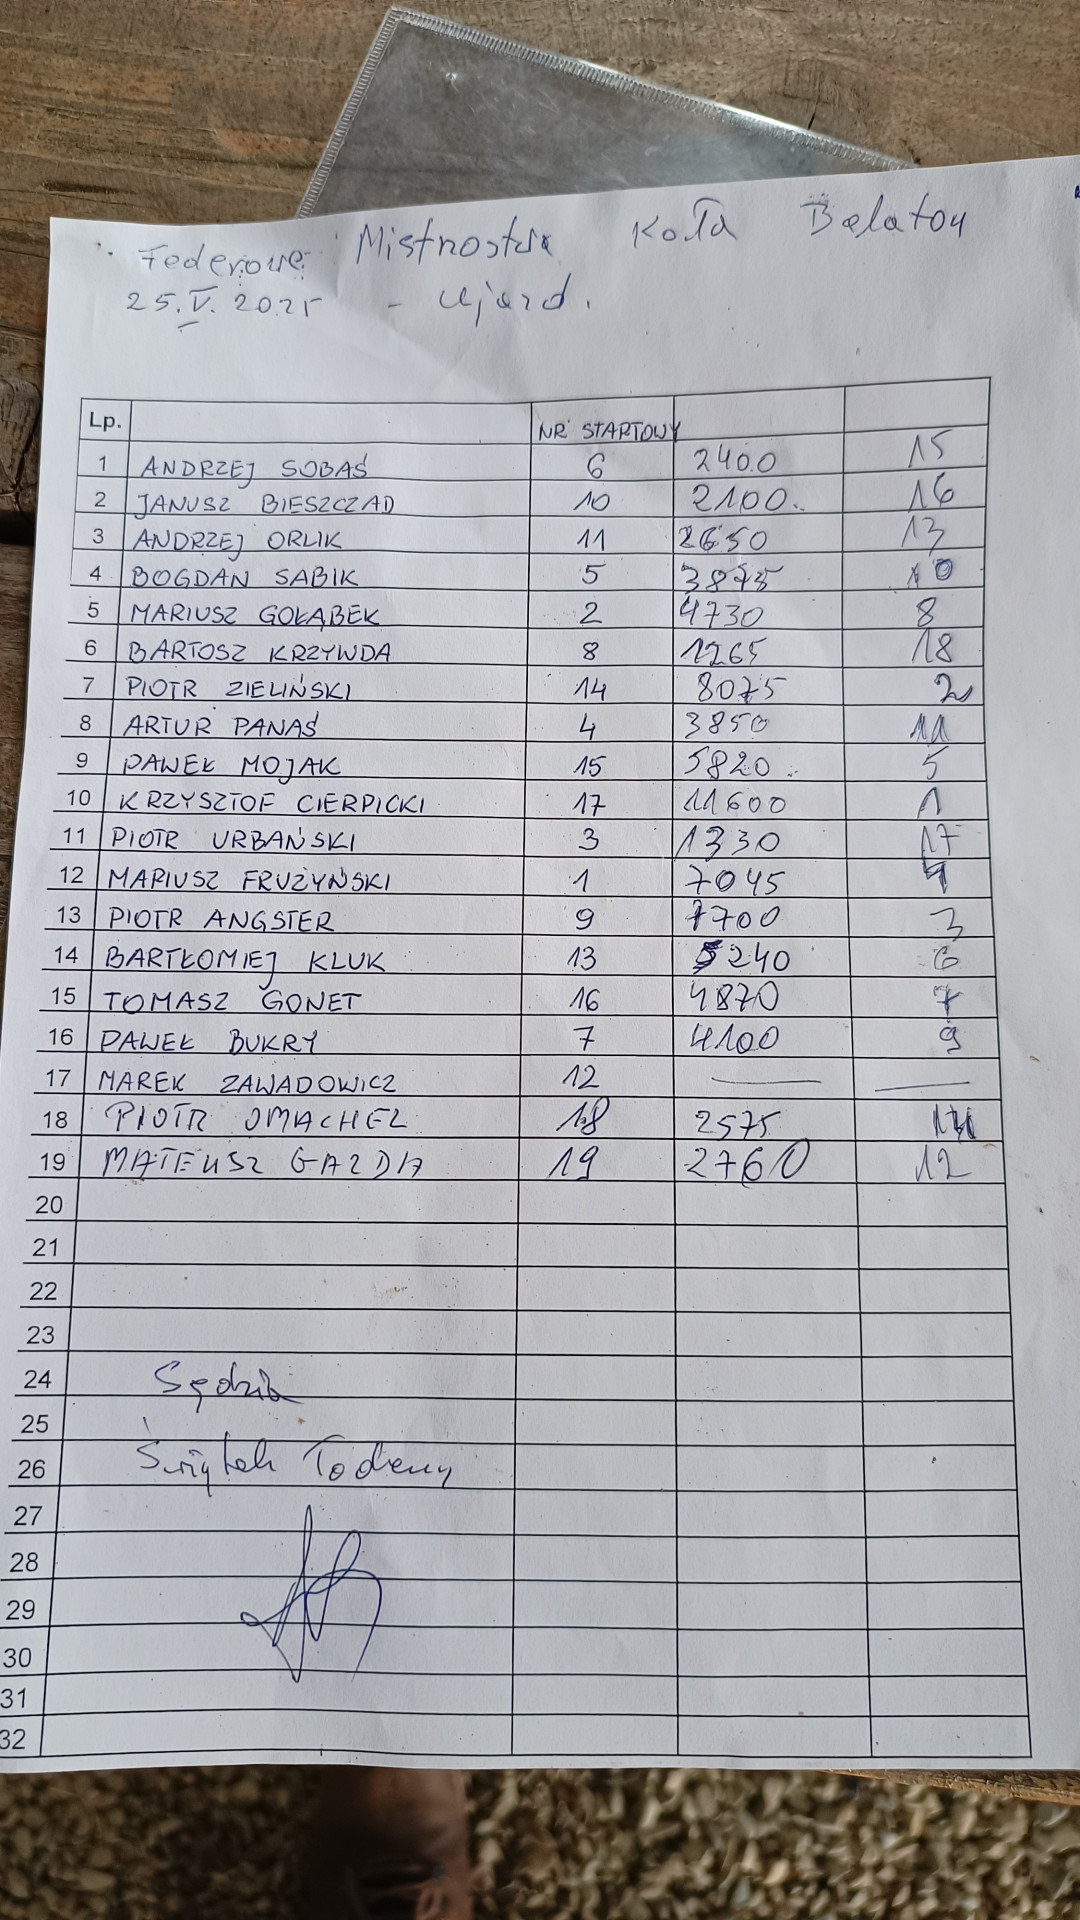 Federowe Mistrostwa Koła Balaton
25.V.2025 - Ujazd.
Lp. NR STARTOWY
1 ANDRZEJ SOBAŚ 6 2400 15
2 JANUSZ BIESZCZAD 10 2100. 16
3 ANDRZEJ ORLIK 11 2650 13
4 BOGDAN SABIK 5 3875 10
5 MARIUSZ GOŁĄBEK 2 4730 8
6 BARTOSZ KRZYWDA 8 1265 18
7 PIOTR ZIELIŃSKI 14 8075 2
8 ARTUR PANAŚ 4 3850 11
9 PAWEŁ MOJAK 15 5820 5
10 KRZYSZTOF CIERPICKI 17 11600 1
11 PIOTR URBAŃSKI 3 1330 17
12 MARIUSZ FRUŻYŃSKI 1 7045 4
13 PIOTR ANGSTER 9 7700 3
14 BARTŁOMIEJ KLUK 13 5240 6
15 TOMASZ GONET 16 4870 7
16 PAWEŁ BUKRY 7 4100 9
17 MAREK ZAWADOWICZ 12 — —
18 PIOTR OMACHEL 18 2575 14
19 MATEUSZ GAZDA 19 2760 12
20
21
22
23
24 Sędzia
25
26 Świątek
27
28
29
30
31
32